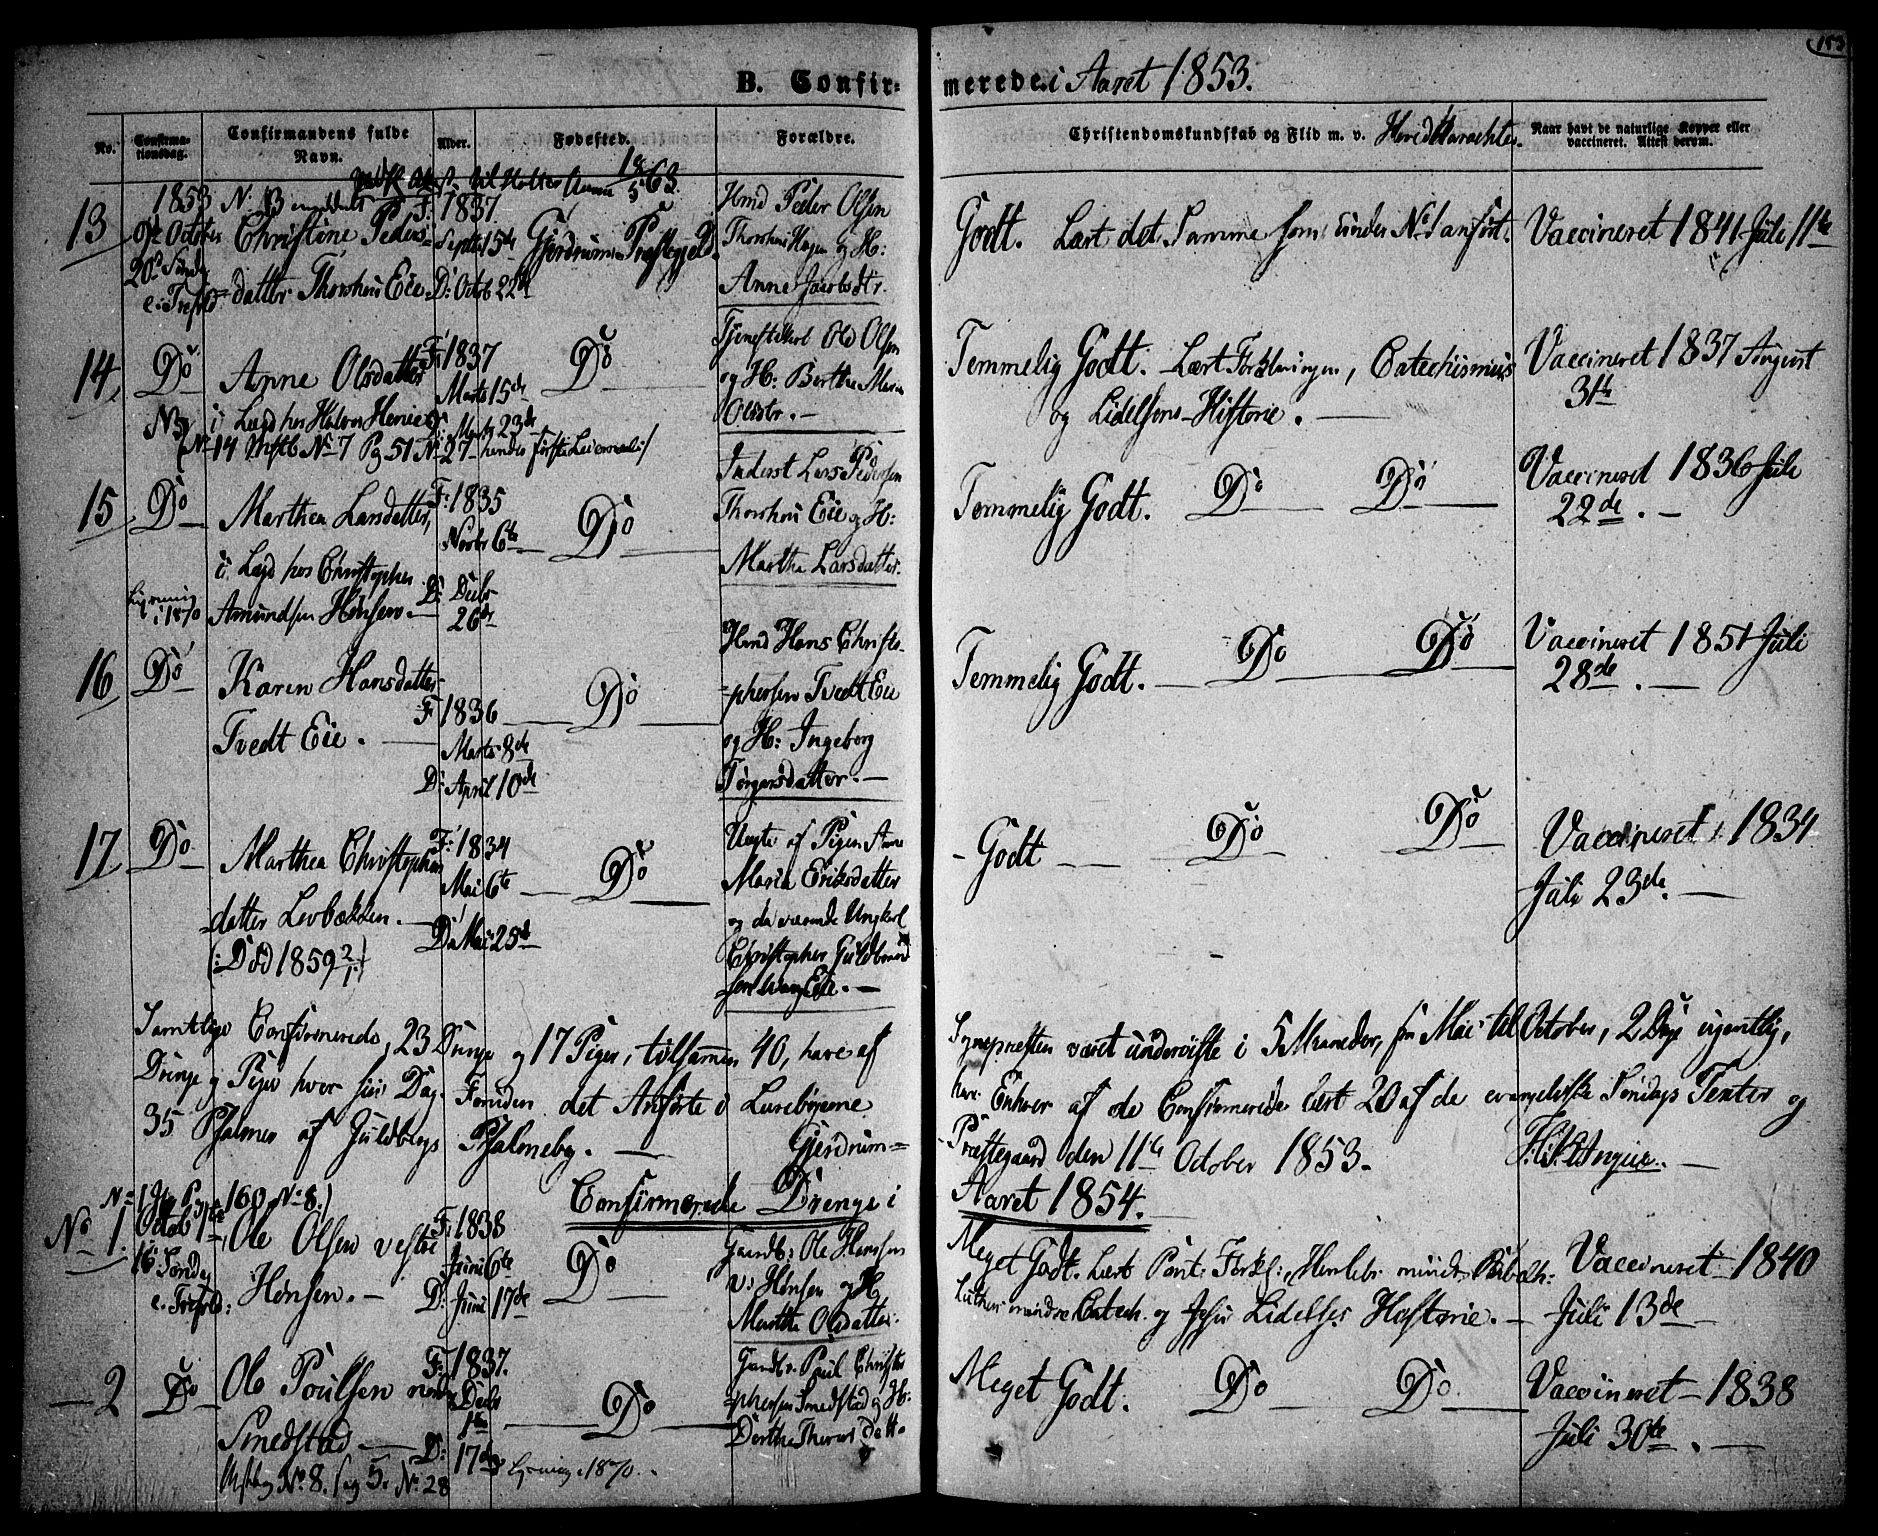 153
B. Confir-
merede i Aaret 1853.
No.
Confirma-
tionsdag.
Confirmandens fulde
Navn.
Alder.
Fødested.
Forældre.
Christendomskundskab og Flid m. v.
Naar havt de naturlige Kopper eller
vaccineret. Attest derom.
13
1853
9de October
20de Sønd.
e. Trefold.
Christine Peders-
datter Thorshoug Eie.
F: 1837
Septbr 15de
D: Octob 22de
Gjerdrums Præstegjeld.
Hmd Peder Olsen
Thorshoug og H:
Anne Jacobsdtr.
Godt. Lært det Samme som under No 1 anført.
Vaccineret 1841 Juli 11te
14
Do
Anne Olsdatter
i Lægd hos Halvor Henie
No 14 No 7 Pg 51 No 27
F: 1837
Marts 15de
23de
Do
Tjenestekarl Ole Olsen
og H: Berthe Maria
Olsdtr. -
Temmelig Godt. Lært Forklaringen, Catechismus
og Lidelsens Historie.
Vaccineret 1837 August
31te
15
Do
Marthea Larsdatter,
i Lægd hos Christopher
Amundsen Hønsen.
F: 1835
Novbr 6te
D: Decbr
26de
Do
Inderst Lars Pedersen
Thorshoug Eie og H:
Marthe Larsdatter.
Temmelig Godt. Do Do
Vaccineret 1836 Juli
22de. -
16
Do
Karen Hansdatter
Tvedt Eie.
F: 1836
Marts 8de
D: April 10de
Do
Hmd Hans Christo-
phersen Tvedt Eie
og H: Ingeborg
Torgersdatter. -
Temmelig Godt. Do Do
Vaccineret 1851 Juli
28de. -
17
Do
Marthea Christophers
datter Lerbækken.
(: Død 1859 2/1 :)
F: 1834
Mai 6te
D: Mai 25de
Do
Uægte af Pigen Anne
Maria Eriksdatter
og da værende Ungkarl
Christopher Guldbrand
sen Eie. -
- Godt Do Do
Vaccineret 1834
Juli 23de. -
Samtlige Confirmerede, 23 Drenge og 17 Piger, tilsammen 40, have af
Sognepresten været underviste i 5 Maaneder, fra Mai til October, 2 Dage ugentlig,
Drenge og Piger hver sin Dag. Foruden det Anførte i Lærebøgerne
have Enhver af de Confirmerede lært 20 af de evangeliske Søndags Texter og
35 Psalmer af Guldbergs Psalmebog. Gjerdrum-
Præstegaard den 11te October 1853.
Confirmerede Drenge i
Aaret 1854.
No 1.
Octob 1ste
16 Sønd.
e. Trefold:
Ole Olsen vestre
Hønsen. -
F: 1838
Juni 6te
D: Juni 17de
Do
Gaardb: Ole Hansen
v: Hønsen og H
Marthe Olsdatter.
Meget Godt. Lært Pont: Forkl:,
Luthers mindre Catech. og Jesu Lidelses Historie. -
Vaccineret 1840
Juli 13de
2
Do
Ole Poulsen nordre
Smedstad
No 8. Pag 5. No 28
F: 1837.
Decbr
1ste
D: 17de
Do
1870.
Gaardb: Poul Christo
phersen Smedstad og H:
Dorthe
Meget Godt. Do Do
Vaccineret 1838
Juli 30te. -